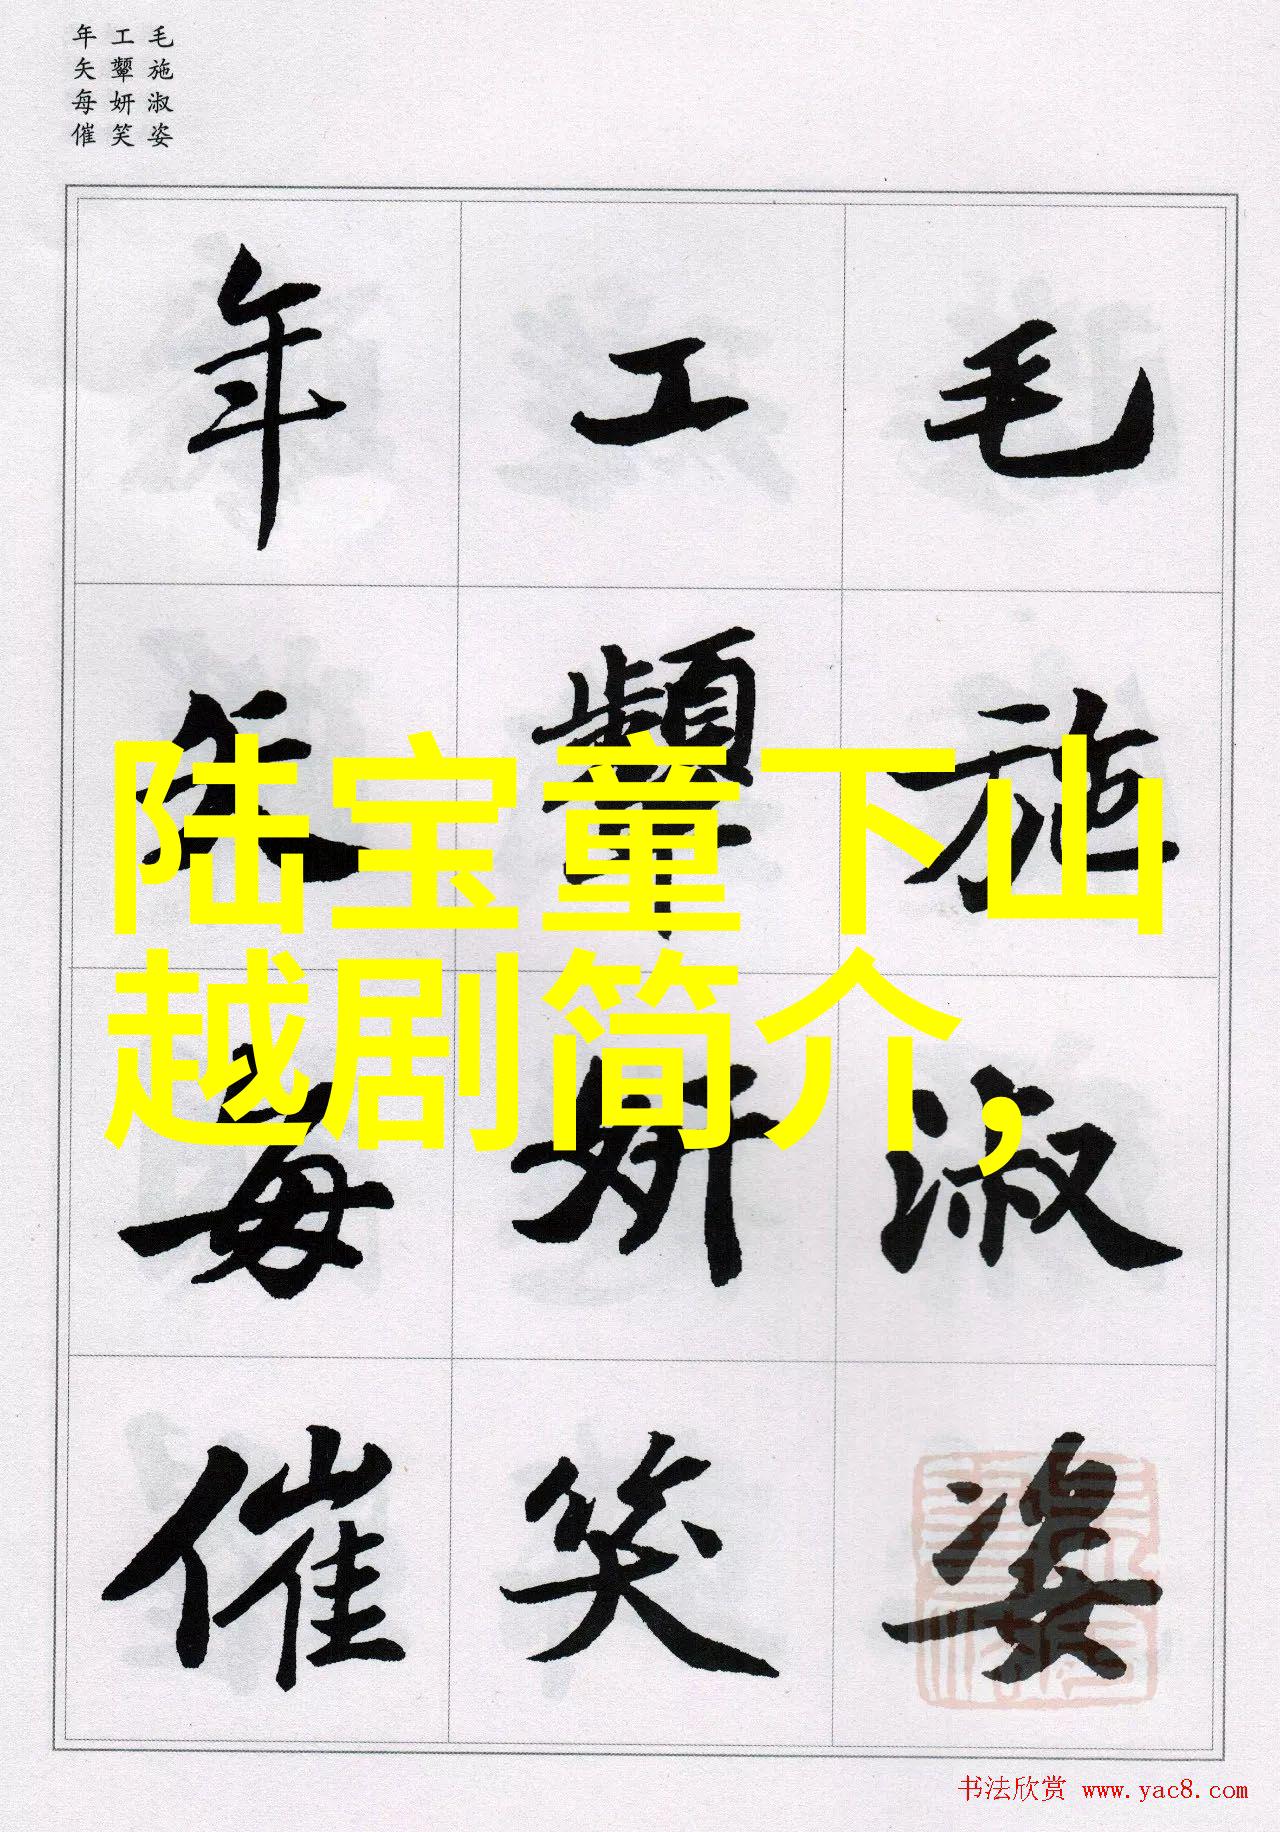 毛施淑姿
工颦妍笑
年矢每催
毛施淑姿
工颦妍笑
年矢每催
陆宝童下山
越剧简介,
书法欣赏 www.yac8.com